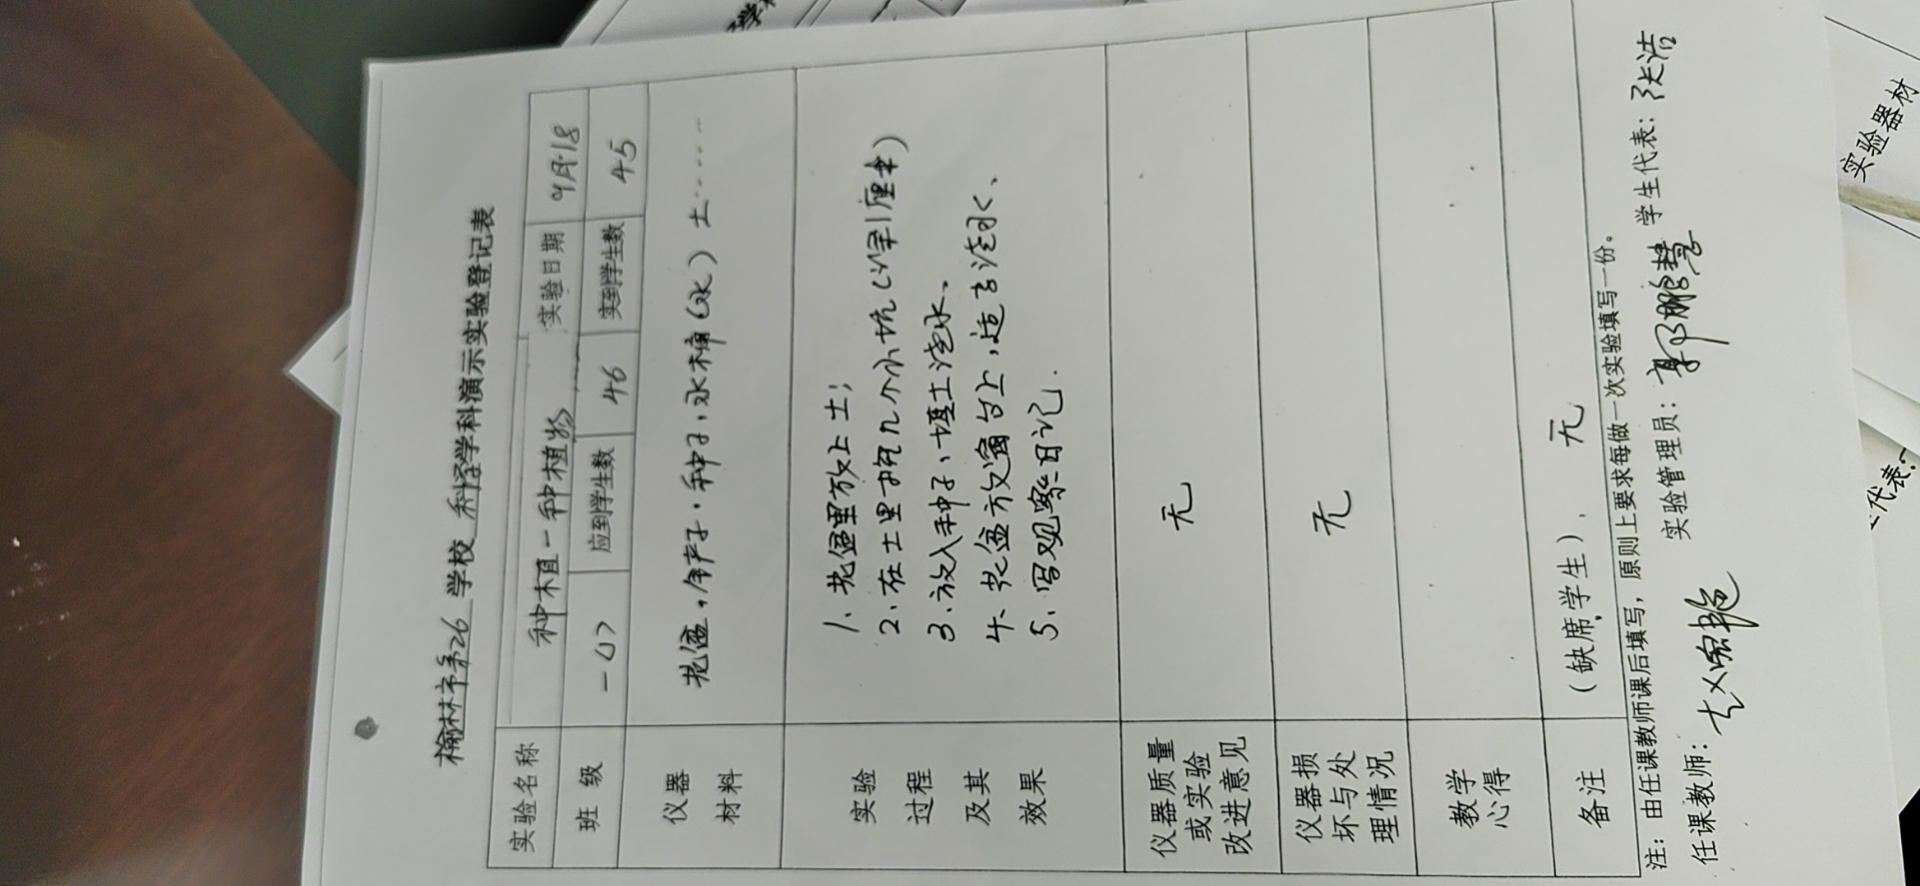 榆林市第26 学校 科学学科演示实验登记表
实验名称 种植一种植物 实验日期 9月18
班级 一(1) 应到学生数 46 实到学生数 45
仪器材料 花盆、铲子、种子、水桶(水) 土……
实验过程及其效果
1、花盆里放上土;
2、在土里挖几个小坑(深1厘米)
3、放入种子、埋土浇水、
4、花盆放窗台上,适当浇水、
5、写观察日记.
仪器质量或实验改进意见 无
仪器损坏与处理情况 无
教学心得
备注 (缺席学生)、 无
注:由任课教师课后填写,原则上要求每做一次实验填写一份。
任课教师: 实验管理员:郭鹏慧 学生代表:张洁
实验器材
代表: